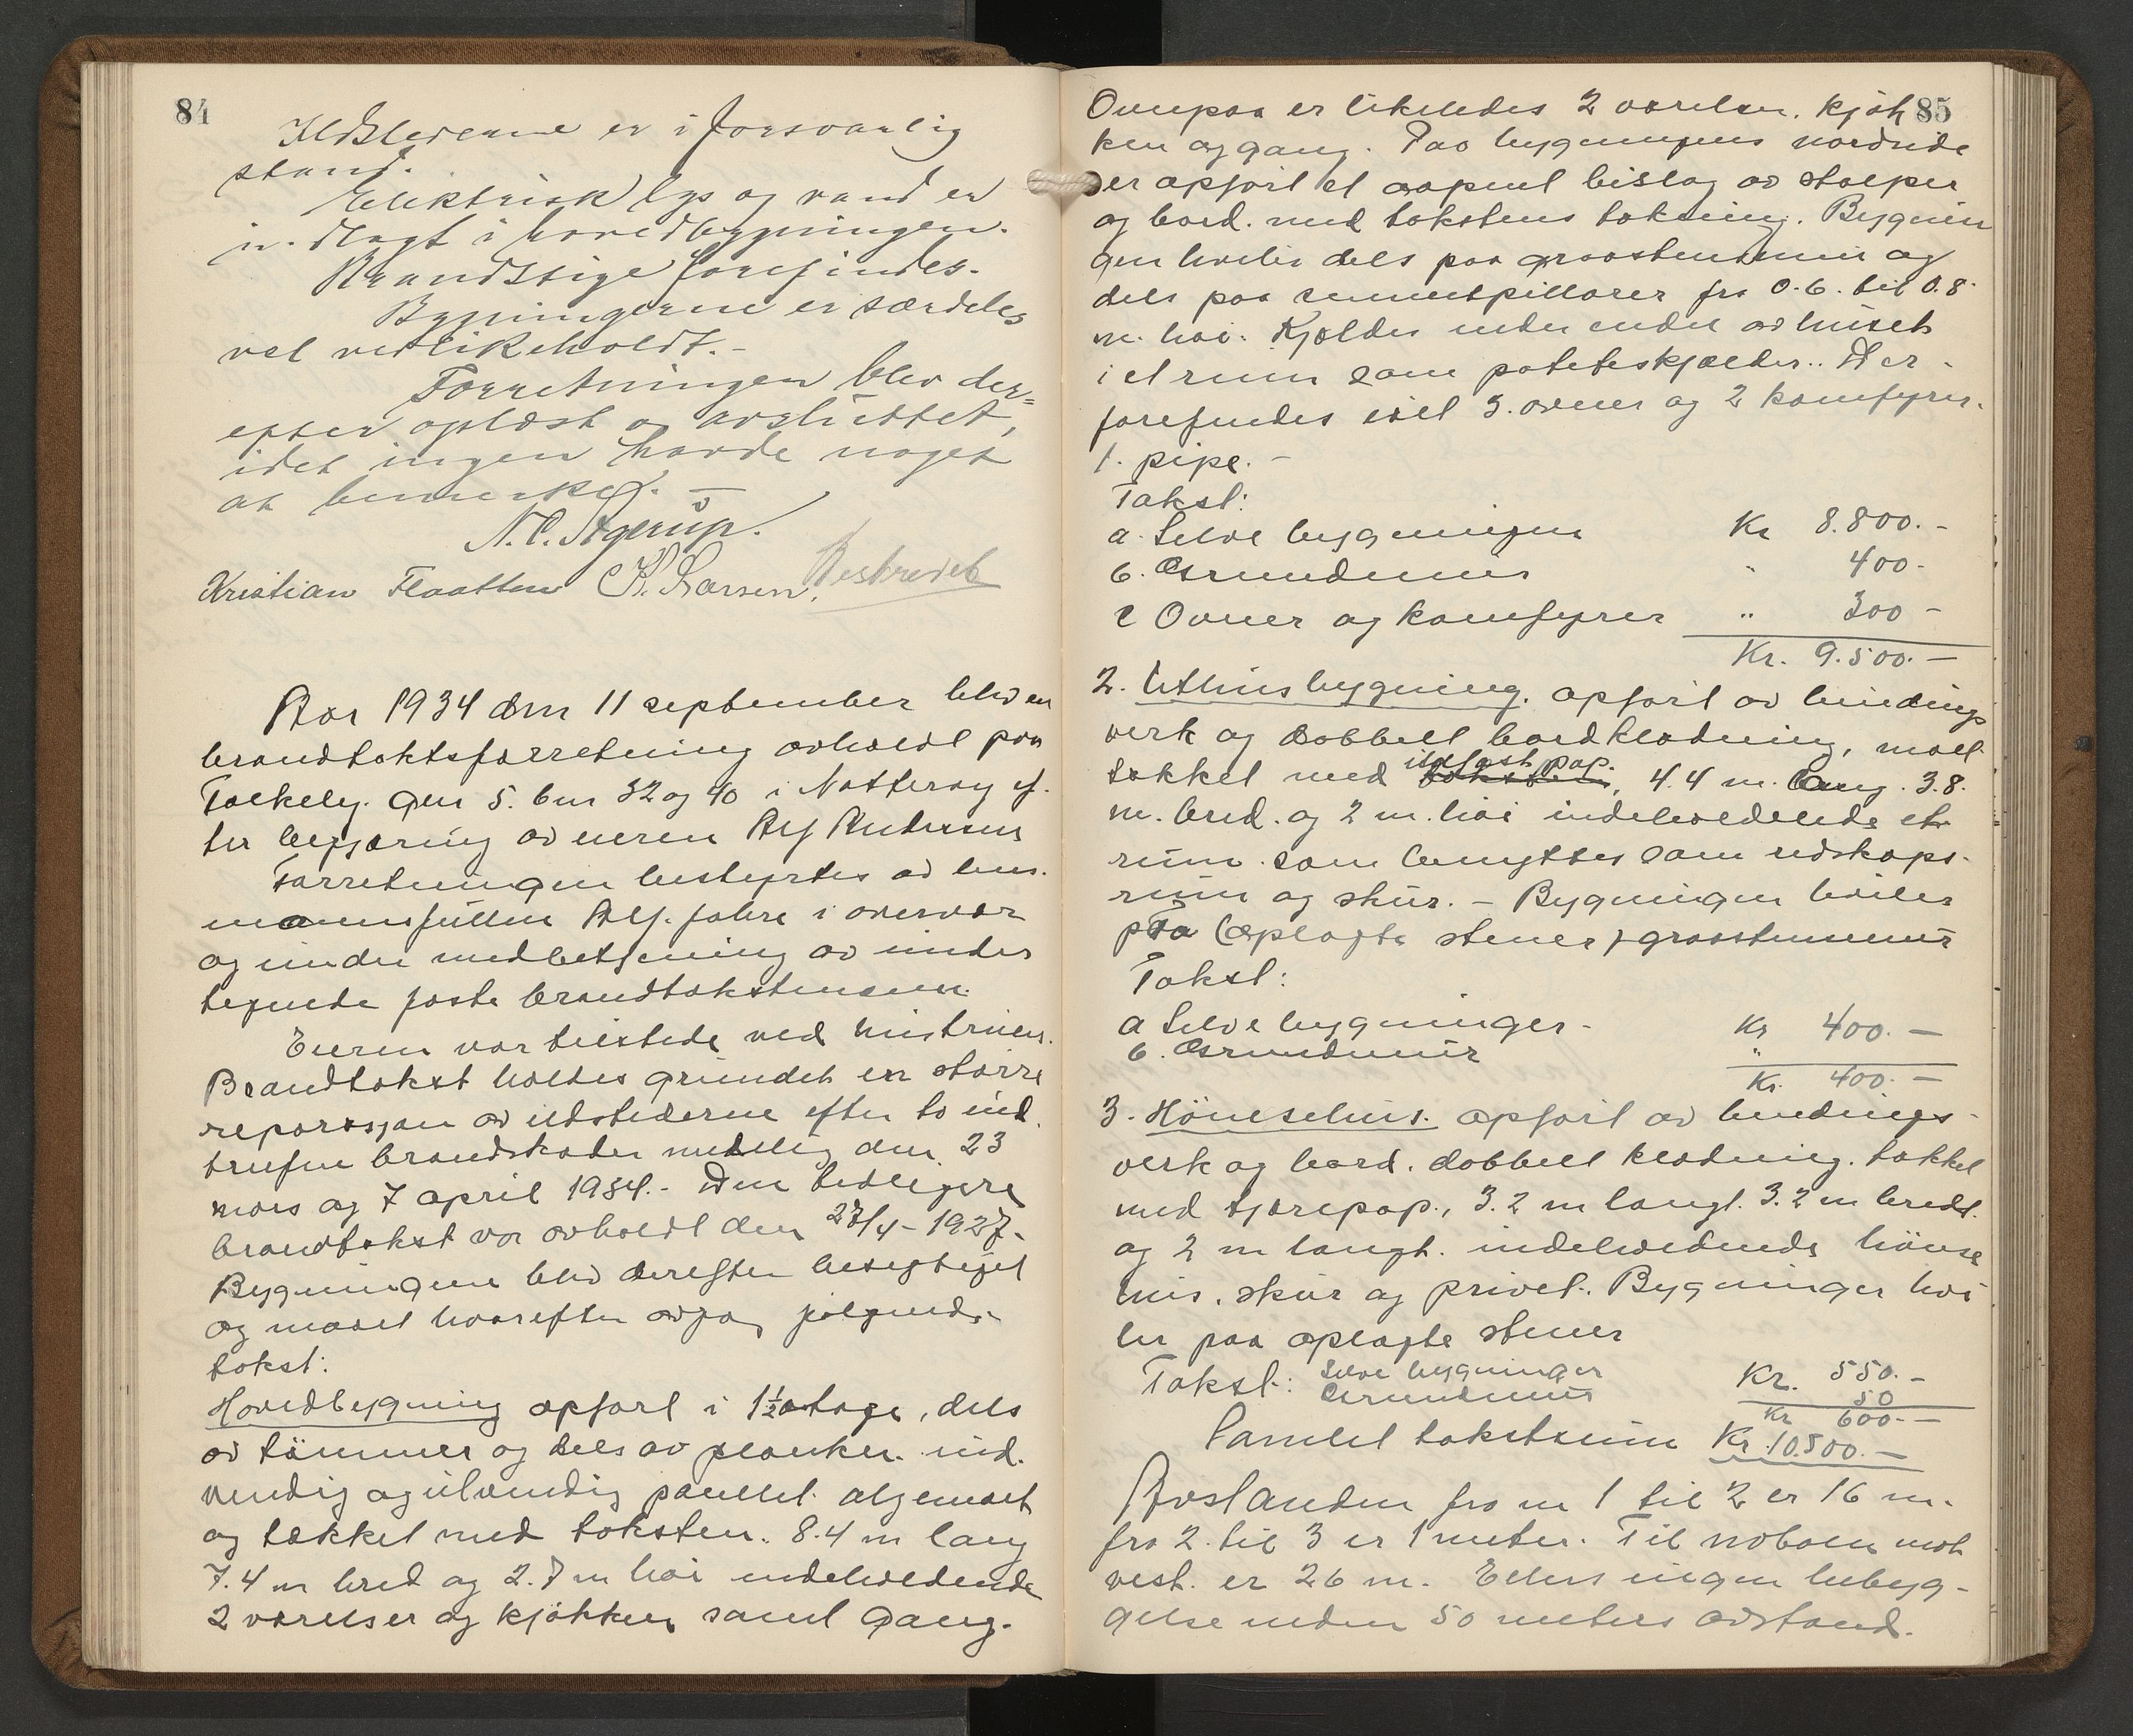 84
Ildstederne er i forsvarlig
stand.
Elektrisk lys og vand er
indlagt i hovedbygningen.
Brandstige forefindes.
Bygningerne er særdeles
vel vedlikeholdt.-
Forretningen blev der=
efter oplæst og avsluttet,
idet ingen havde noget
at bemerke. -
N. C. Agerup.
Kristian Flaatten K. Larsen.
Aar 1934 den 11 september blev en
brandtakstforretning avholdt paa
gnr 5. bnr 32 og 40 i Nøtterøy ef.
ter begjæring av eieren Alf Andersen
Forretningen bestyrtes av lens.
mannsfullm Alf. Jahre i overvær
og under medbetjening av under
tegnede faste brandtakstmenn.
Eieren var tilstede ved hustruen.
Brandtakst holdes grundet en større
reparasjon av ildstederne efter to ind.
trufne brandskader nemlig den 23
mars og 7 april 1934.- Den tidligere
brandtakst var avholdt den 27/4 - 1927.
Bygningene blev derefter besigtiget
og maalt hvorefter avgav følgende
takst:
Hovedbygning opført i 1½ etage, dels
av tømmer og dels av planker. ind.
vendig og utvendig panelet. oljemalt
og tækket med taksten. 8.4 m lang
7.4 m bred og 2.7 m høi indeholdende
2 værelser og kjøkken samt gang.
85
Ovenpaa er likeledes 2 værelser. kjøk
ken og gang. Paa bygningens nordside
er opført et aapent bislag av stolper
og bord. med takstens tækning. Bygnin
gen hviler dels paa graastensmur og
dels paa cementpillarer fra 0.6. til 0.8.
m. høi. Kjelder under endel av huset
i et rum som potetskjælder.. Der
forefindes i alt 3. ovner og 2 komfyrer.
1. pipe. -
Takst:
a. Selve bygningen Kr 8.800.-
b. Grundmur " 400.-
c Ovner og komfyrer " 300-
Kr. 9.500.-
2. Uthusbygning. opført av bindings
verk og dobbell bordklædning, malt
tækket med taksten, 4.4 m. lang. 3.8.
m. bred. og 2 m. høi indeholdende et
rum. som benyttes som redskaps-
rum og skur. - Bygningen hviler
paa (oplagte stener) graastensmur
Takst:
a Selve bygninger- Kr 400.-
b. Grundmur "
Kr. 400.-
3. Hønsehus. opført av bindings-
verk og bord. dobbell klædning. tækket
med tjærepap., 3.2 m langt. 3.2 m bredt.
og 2 m langt. indeholdende hønse
hus, skur og privet. Bygninger hvi
ler paa oplagte stener
Takst: Selve bygninger Kr. 550.-
Grundmur 50
Kr 600.-
Samlet takstsum Kr. 10.500.-
Avstanden fra nr 1 til 2 er 16 m.
fra 2. til 3 er 1 meter. Til naboen mot
vest. er 26 m. Ellers ingen bebyg-
gelse inden 50 meters avstand.